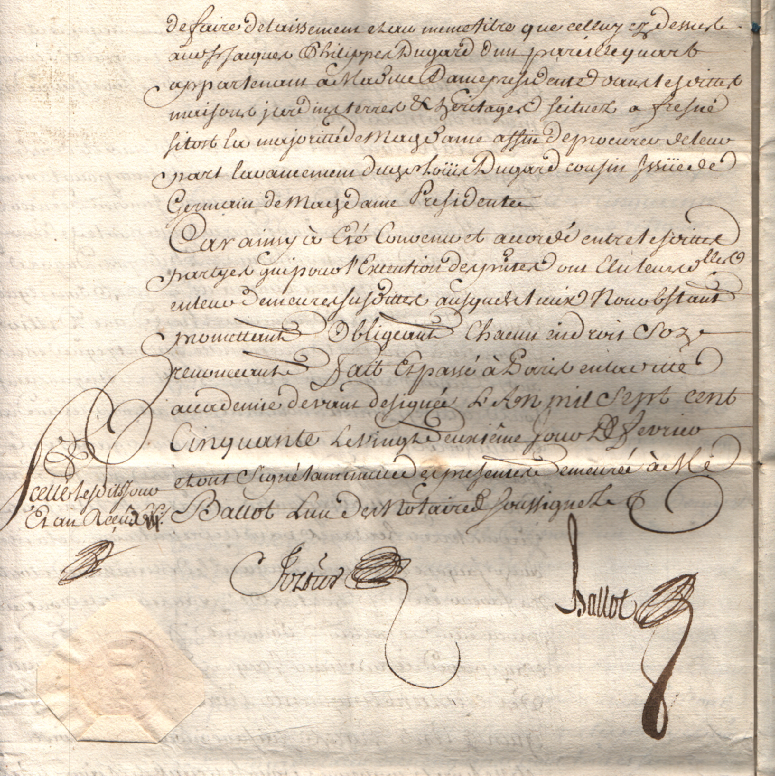 de faire delaissement et au meme titre que celluy cy dessus
aud Sr Jacques Philippes Dugard d'un pareil quart
appartenant a Madite Dame presidente dans lesdittes
maisons jardins terres & heritages scituez a fresne
sitost la majorité de Mad dame affin de procurer de leur
part lavancement dud Sr Loüis Dugard cousin Issüe de
Germain de Mad dame Presidente
Car ainsy à Eté Convenu et accordé entre lesdittes
partyes qui pour l'Execution des pntes ont Elu leurs
en leurs demeures susdittes ausquels Lieux Nonobstant
promettant Obligeant Chacun endroit Soy
renonceant Fait Et passé à Paris en la
devant designée L'An mil Sept Cent
Cinquante Le vingt deuxième jour De Fevrier
et ont Signé la minutte des presentes demeurée à Me
Ballot L'un des Notaires Soussignez
Scellé lesdits jour
Et an
Ballot